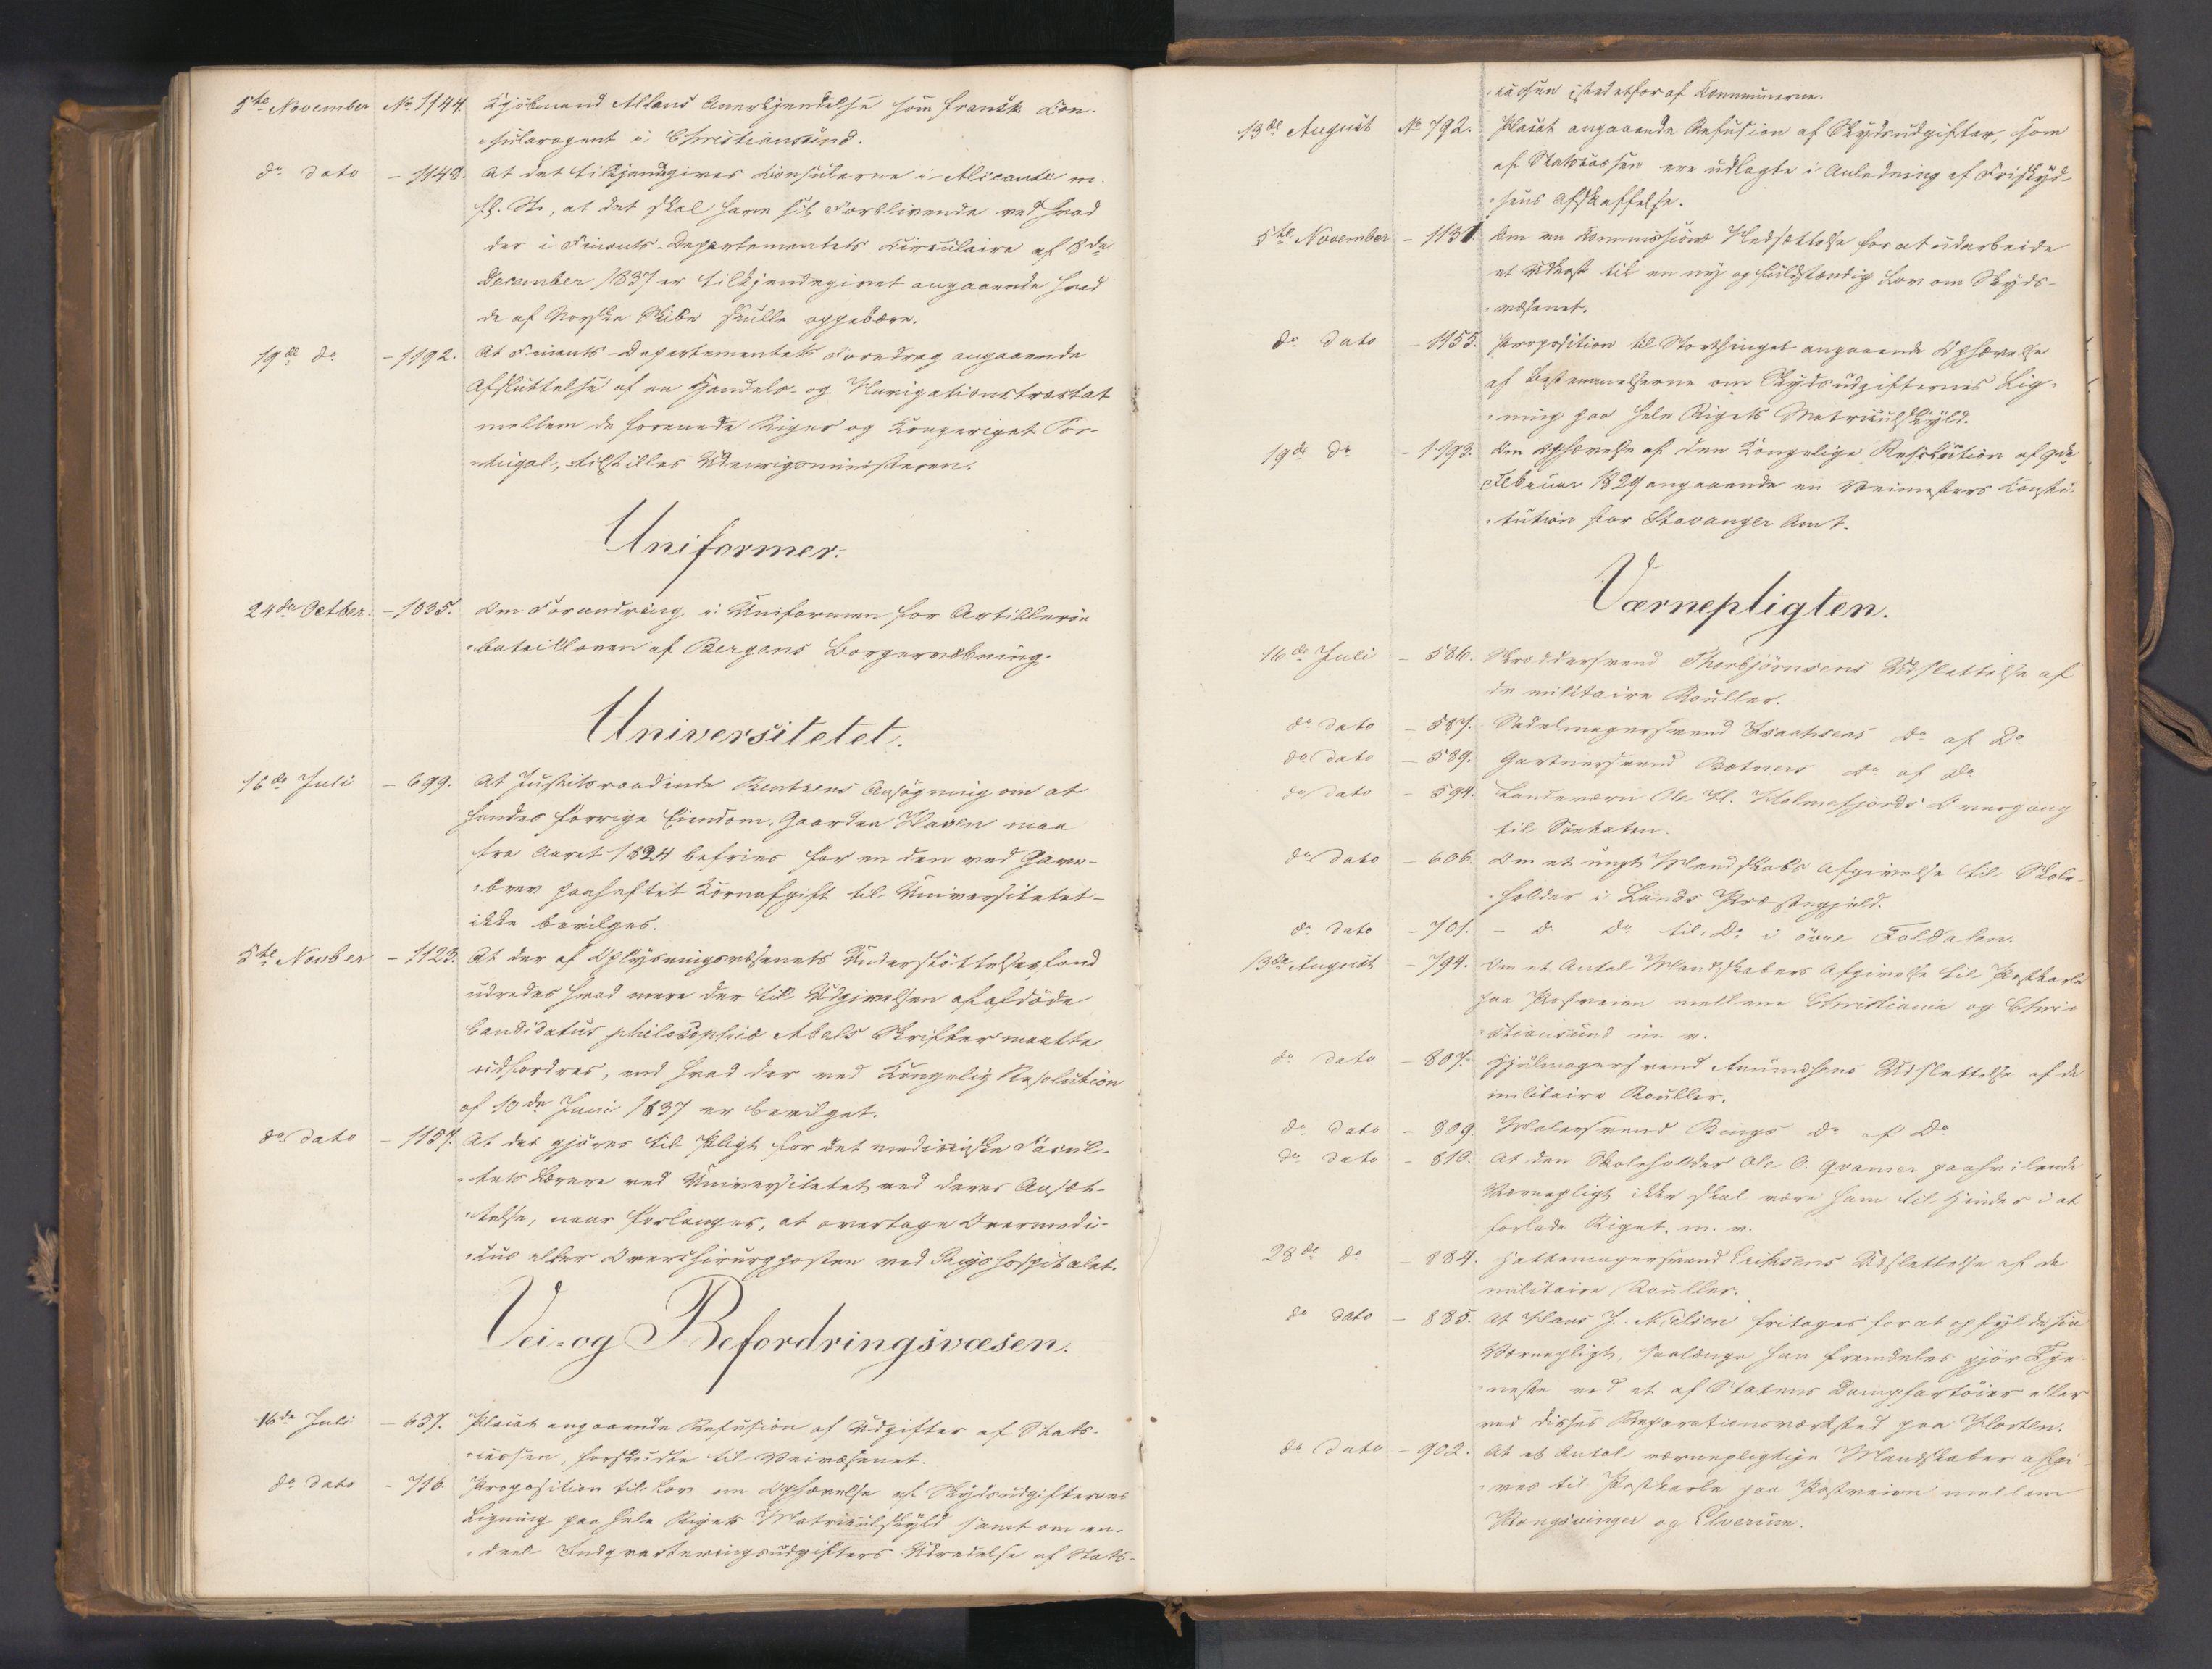 5te November No 1144. Kjöbmand Allans Anerkjendelse som fransk Con-
sularagent i Christianssund.
do dato - 1148. At det tilkjendegives Consulerne i Alicante m.
fl. St., at det skal have sit Forblivende ved hvad
der i Finants-Departementets Circulaire af 8de
December 1837 er tilkjendegivet angaaende hvad
de af Norske Skibe skulle oppebære.
19de do - 1192. At Finants-Departementets Foredrag angaaende
Afsluttelse af en Handels- og Navigationstractat
mellem de forenede Riger og Kongeriget Por-
tugal, tilstilles Udenrigsministeren.
Uniformer.
24de Octber. - 1035. Om Forandring i Uniformen for Artillerie
bataillonen af Bergens Borgervæbning.
Universitetet.
16de Juli - 699. At Justitsraadinde Bentzens Ansögning om at
hendes forrige Eiendom, Gaarden Waven maa
fra Aaret 1824 befries for en den ved Gave-
brev paaheftet Kornafgift til Universitetet
ikke bevilges.
5te Novber - 1123. At der af Oplysningsvæsenets Understöttelsesfond
udredes hvad mere der til Udgivelsen af afdöde
Candidatus philosophiæ Abels Skrifter maatte
udfordres, end hvad der ved Kongelig Resolution
af 10de Juni 1837 er bevilget.
do dato - 1157. At det gjöres til Pligt for det medicinske Facul-
tets Lærere ved Universitetet ved deres Ansæt-
telse, naar forlanges, at overtage Overmedi-
cus eller Overchirurgposten ved Rigshospitalet.
Vei- og Befordringsvæsen.
16de Juli - 657. Placat angaaende Refusion af Udgifter af Stats-
cassen, forskudte til Veivæsenet.
do dato - 716. Proposition til Lov om Ophævelse af Skydsudgifternes
Ligning paa hele Rigets Matriculskyld samt om en-
deel Indqvarteringsudgifters Udredelse af Stats-
cassen istedetfor af Kommunerne.
13de August No 792. Placat angaaende Refusion af Skydsudgifter, som
af Statscassen ere udlagte i Anledning af Friskyd-
sens Afskaffelse.
5te November - 1131 Om en Kommissions Nedsættelse for at udarbeide
et Udkast til en ny og fuldstændig Lov om Skyds-
væsenet.
do dato - 1155. Proposition til Storthinget angaaende Ophævelse
af Bestemmelserne om Skydsudgifternes Lig-
ning paa hele Rigets Matriculskyld.
19de do - 1193. Om Ophævelse af den Kongelige Resolution af 9de
Februar 1829 angaaende en Veimesters Consti-
tution for Stavanger Amt.
Værnepligten.
16de Juli - 586. Skræddersvend Thorbjörnsens Udslettelse af
de militaire Rouller.
do dato - 587. Sadelmagersvend Isachsens do af Do
do dato - 589. Gartnersvend Botners do af do
do dato - 594. Landeværn Ole H. Holmefjords Overgang
til Söetaten.
do dato - 606. Om et ungt Mandskabs Afgivelse til Skole-
holder i Lunds Præstegjeld.
do dato - 701. - do Do til Do i övre Foldalen.
13de August - 794. Om et Antal Mandskabers Afgivelse til Postkarle
paa Postveien mellem Christiania og Chri-
stiansund m. v.
do dato - 807. Hjulmagersvend Amundsens Udslettelse af de
militaire Rouller.
do dato - 809. Malersvend Rings do af Do
do dato - 810. At den Skoleholder Ole O. Qvamen paahvilende
Værnepligt ikke skal være ham til Hinder i at
forlade Riget. m. v.
28de do - 884. Hattemagersvend Eriksens Udslettelse af de
militaire Rouller.
do dato - 885. At Hans J. Nielsen fritages for at opfylde sin
Værnepligt, saalænge han fremdeles gjör Tje-
neste ved et af Statens Dampfartöier eller
ved disses Reparationsværksted paa Horten.
do dato - 902. At et Antal værnepligtige Mandskaber afgi-
ves til Postkarle paa Postveien mellem
Kongsvinger og Elverum.